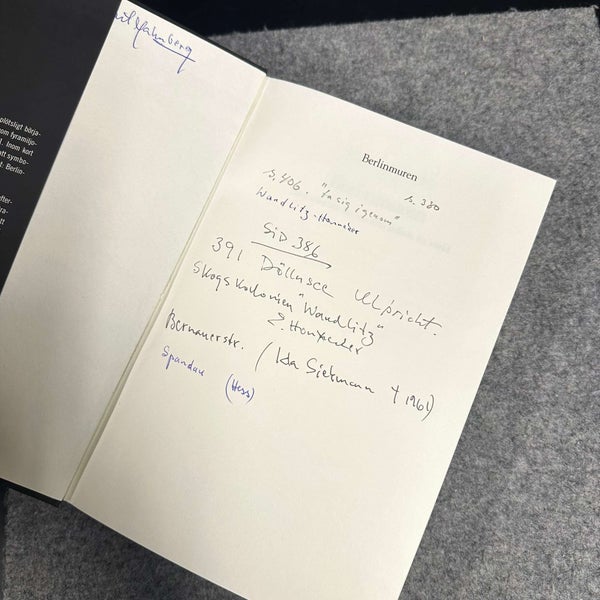 plötsligt börja-
om fyramiljo-
l. Inom kort
att symbo-
t Berlin-
efter-
ra-
tt
Berlinmuren
s. 406. "ta sig igenom" s. 380
Wandlitz-Honecker
SID 386
391 Döllnsee Ulbricht.
Skogskolonien "Wandlitz"
E. Honecker
Bernauerstr. (Ida Siekmann † 1961)
Spandau (Hess)